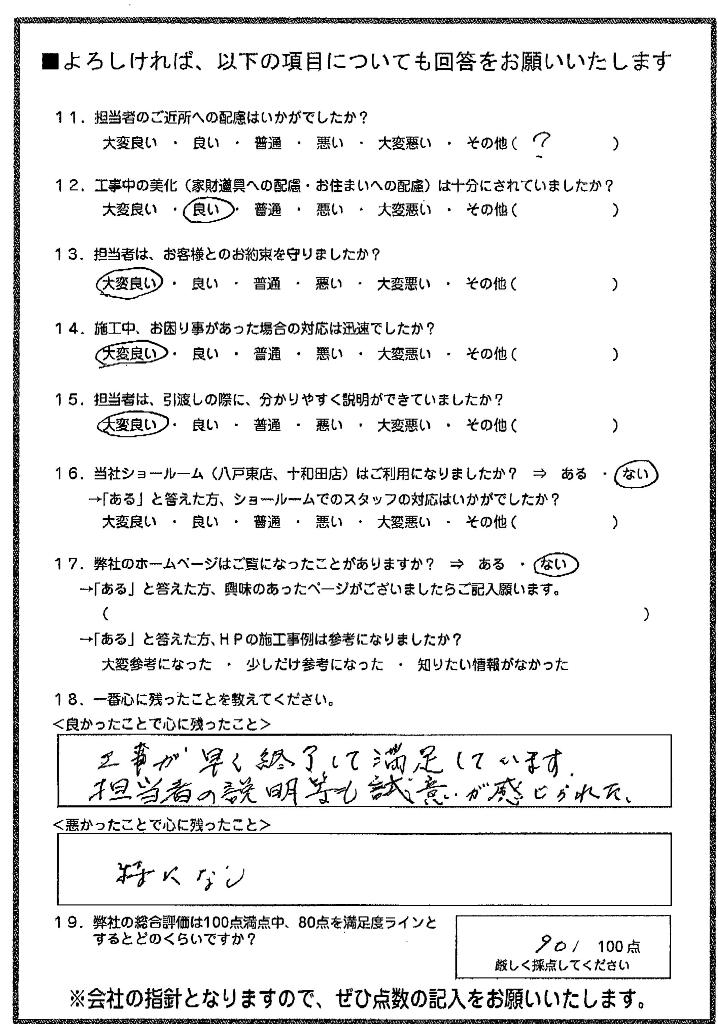 ■よろしければ、以下の項目についても回答をお願いいたします
１１．担当者のご近所への配慮はいかがでしたか？
大変良い ・ 良い ・ 普通 ・ 悪い ・ 大変悪い ・ その他（ ？ ）
１２．工事中の美化（家財道具への配慮・お住まいへの配慮）は十分にされていましたか？
大変良い ・ 良い ・ 普通 ・ 悪い ・ 大変悪い ・ その他（ ）
１３．担当者は、お客様とのお約束を守りましたか？
大変良い ・ 良い ・ 普通 ・ 悪い ・ 大変悪い ・ その他（ ）
１４．施工中、お困り事があった場合の対応は迅速でしたか？
大変良い ・ 良い ・ 普通 ・ 悪い ・ 大変悪い ・ その他（ ）
１５．担当者は、引渡しの際に、分かりやすく説明ができていましたか？
大変良い ・ 良い ・ 普通 ・ 悪い ・ 大変悪い ・ その他（ ）
１６．当社ショールーム（八戸東店、十和田店）はご利用になりましたか？ ⇒ ある ・ ない
→「ある」と答えた方、ショールームでのスタッフの対応はいかがでしたか？
大変良い ・ 良い ・ 普通 ・ 悪い ・ 大変悪い ・ その他（ ）
１７．弊社のホームページはご覧になったことがありますか？ ⇒ ある ・ ない
→「ある」と答えた方、興味のあったページがございましたらご記入願います。
（ ）
→「ある」と答えた方、ＨＰの施工事例は参考になりましたか？
大変参考になった ・ 少しだけ参考になった ・ 知りたい情報がなかった
１８．一番心に残ったことを教えてください。
＜良かったことで心に残ったこと＞
工事が早く終了して満足しています．
担当者の説明等も誠意が感じられた、
＜悪かったことで心に残ったこと＞
特になし
１９．弊社の総合評価は100点満点中、80点を満足度ラインと
するとどのくらいですか？
90/ 100点
厳しく採点してください
※会社の指針となりますので、ぜひ点数の記入をお願いいたします。